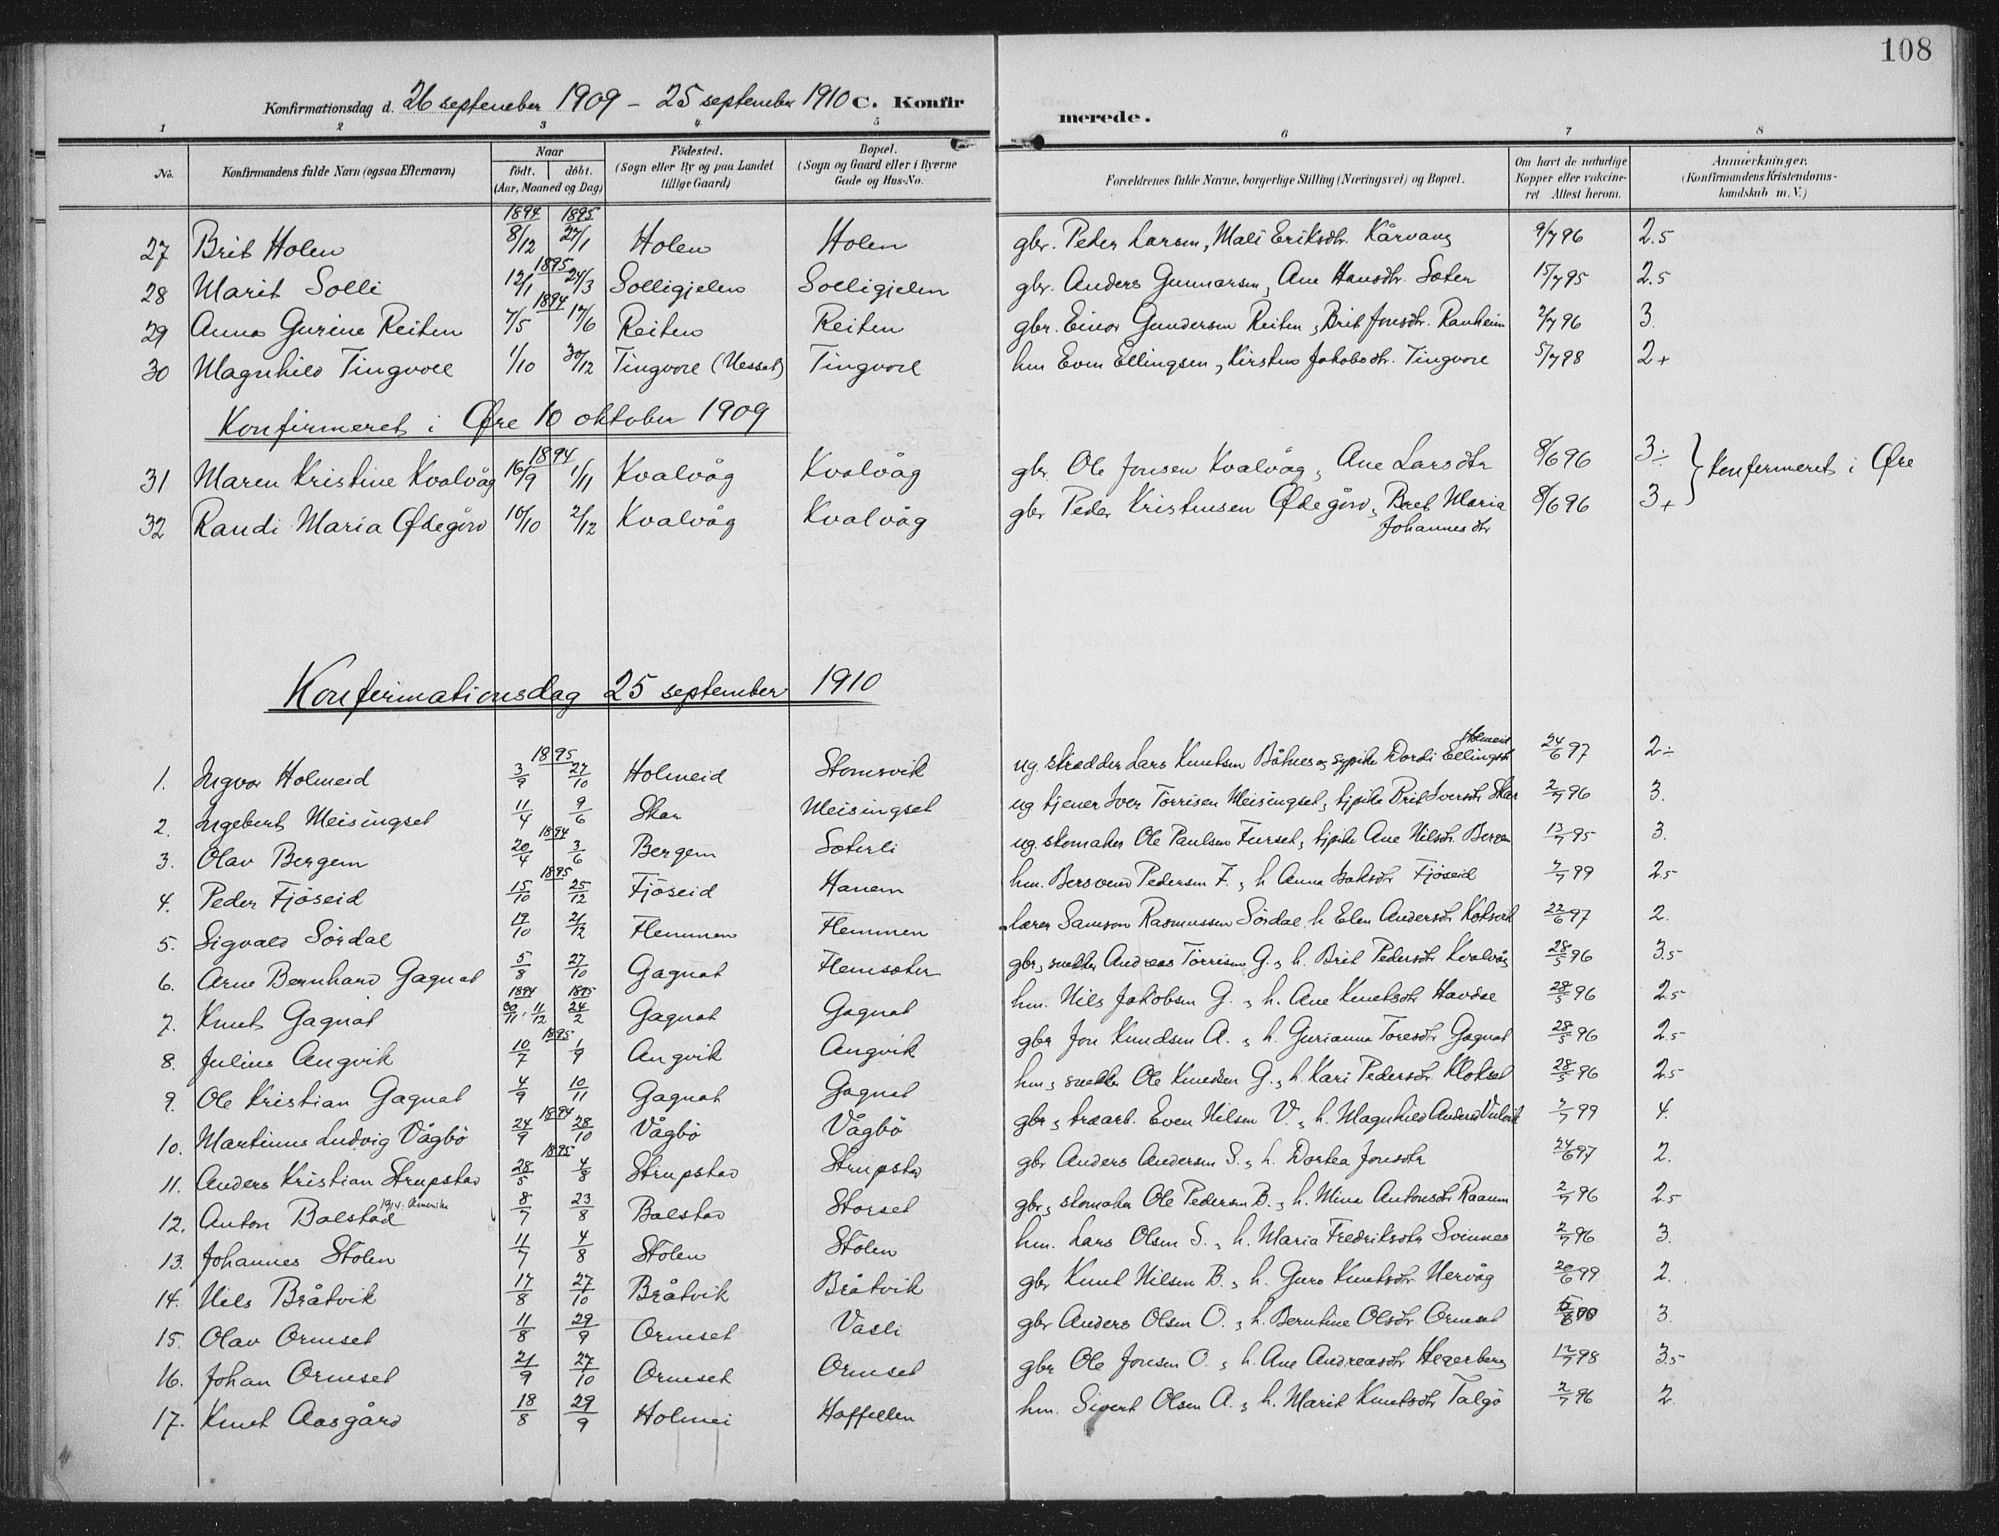 108
Konfirmationsdag d. 26 september 1909 – 25 september 1910 C. Konfirmerede.
1 2 3 4 5 6 7 8
No. Konfirmandens fulde Navn (ogsaa Efternavn) Naar födt. döbt. (Aar, Maaned og Dag) Födested. (Sogn eller By og paa Landet tillige Gaard) Bopæl. (Sogn og Gaard eller i Byerne Gade og Hus-No. Forældrenes fulde Navne, borgerlige Stilling (Næringsvei) og Bopæl. Om havt de naturlige Kopper eller vakcineret Attest herom. Anmærkninger. (Konfirmandens Kristendomskundskab m. V.)
1894 1895
27 Brit Holen 8/12 27/1 Holen Holen gbr. Peder Larsen, Mali Eriksdtr. Kårvang 9/7 96 2.5
1895
28 Marit Solli 12/1 24/3 Solligjelen Solligjelen gbr. Anders Gunnarsen, Ane Hansdtr. Sæter 15/7 95 2.5
1894
29 Anna Gurine Reiten 7/5 17/6 Reiten Reiten gbr. Einar Gundersen Reiten, Brit Jonsdtr. Ranheim 2/7 96 3.
30 Magnhild Tingvoll 1/10 30/12 Tingvoll (Nesset) Tingvoll hm Even Ellingsen, Kirsten Jakobsdtr. Tingvoll 5/7 98 2+
Konfirmeret i Øre 10 oktober 1909
1894
31 Maren Kristine Kvalvåg 16/9 1/11 Kvalvåg Kvalvåg gbr Ole Jonsen Kvalvåg, Ane Larsdtr 8/6 96 3÷ } Konfirmeret i Øre
32 Randi Maria Ødegård 10/10 2/12 Kvalvåg Kvalvåg gbr Peder Kristensen Ødegård, Beret Maria Johannesdtr 8/6 96 3+
Konfirmationsdag 25 september 1910
1895
1. Ingvar Holmeid 3/9 27/10 Holmeid Stomsvik ug. skrædder Lars Knutsen Båtnes og sypike Dordi Ellingsdtr Holmeid 24/6 97 2÷
2. Ingebert Meisingset 11/4 9/6 Skar Meisingset ug tjener Iver Torrisen Meisingset, tjpike Brit Iversdtr Skar 2/7 96 3.
1894
3. Olav Bergem 20/4 3/6 Bergem Sæterli ug. skomaker Ole Paulsen Furset, tjpike Ane Nilsdtr. Bergem 13/7 95 3.
1895
4. Peder Fjöseid 15/10 25/12 Fjöseid Hanem hm. Bersvend Pedersen F., h Anna Isaksdtr Fjöseid 7/7 99 2.5
5. Sigvald Sördal 19/10 21/12 Flemmen Flemmen lærer Samson Rasmussen Sördal, h Elen Andersdtr Koksvik 22/6 97 2.
6. Arne Bernhard Gagnat 5/8 27/10 Gagnat Flemsæter gbr, snekker Andreas Törrisen G., h. Brit Pedersdtr Kvalvåg 28/5 96 3.5
1894 1895
7. Knut Gagnat 30/11. 11/12 24/2 Gagnat Gagnat hm. Nils Jakobsen G., h. Ane Knutsdtr Havdal 28/5 96 2.5
1895
8. Julius Angvik 10/7 1/9 Angvik Angvik gbr Jon Knudsen A., h. Gurianna Toresdtr Gagnat 28/5 96 2.5
9. Ole Kristian Gagnat 4/9 10/11 Gagnat Gagnat hm, snekker Ole Knudsen G., h. Kari Pedersdtr. Klokset 28/5 96 2.5
1894
10. Martinus Ludvig Vågbö 24/9 28/10 Vågbö Vågbö gbr, træarb. Even Nilsen V., h. Magnhild Andersd 7/7 99 4.
1895
11. Anders Kristian Strupstad 28/5 4/8 Strupstad Strupstad gbr Anders Andersen S., h. Dortea Jonsdtr 24/6 97 2.
12. Anton Bolstad 1914: Amerika 8/7 23/8 Bolstad Storset gbr, skomaker Ole Pedersen B., h. Mina Antonsdtr Raanm 2/7 96 2.5
13. Johannes Stölen 11/7 4/8 Stölen Stölen hm. Lars Olsen S., h. Maria Fredriksdtr Svinnes 2/7 96 3.
14. Nils Bråtvik 17/8 27/10 Bråtvik Bråtvik gbr Knut Nilsen B., h. Guro Knutsdtr. Nervåg 20/6 99 2.
15. Olav Ormset 11/8 29/9 Ormset Vasli gbr Anders Olsen O., h. Berntine Olsdtr. Ormset 3.
16. Johan Ormset 21/9 27/10 Ormset Ormset gbr Ole Jonsen O., h. Ane Andreasdtr Hegerberg 12/7 98 3.5
17. Knut Aasgård 18/8 29/9 Holmei Hoffellen hm. Sivert Olsen A., h. Marit Knutsdtr Talgö 2/7 96 2.